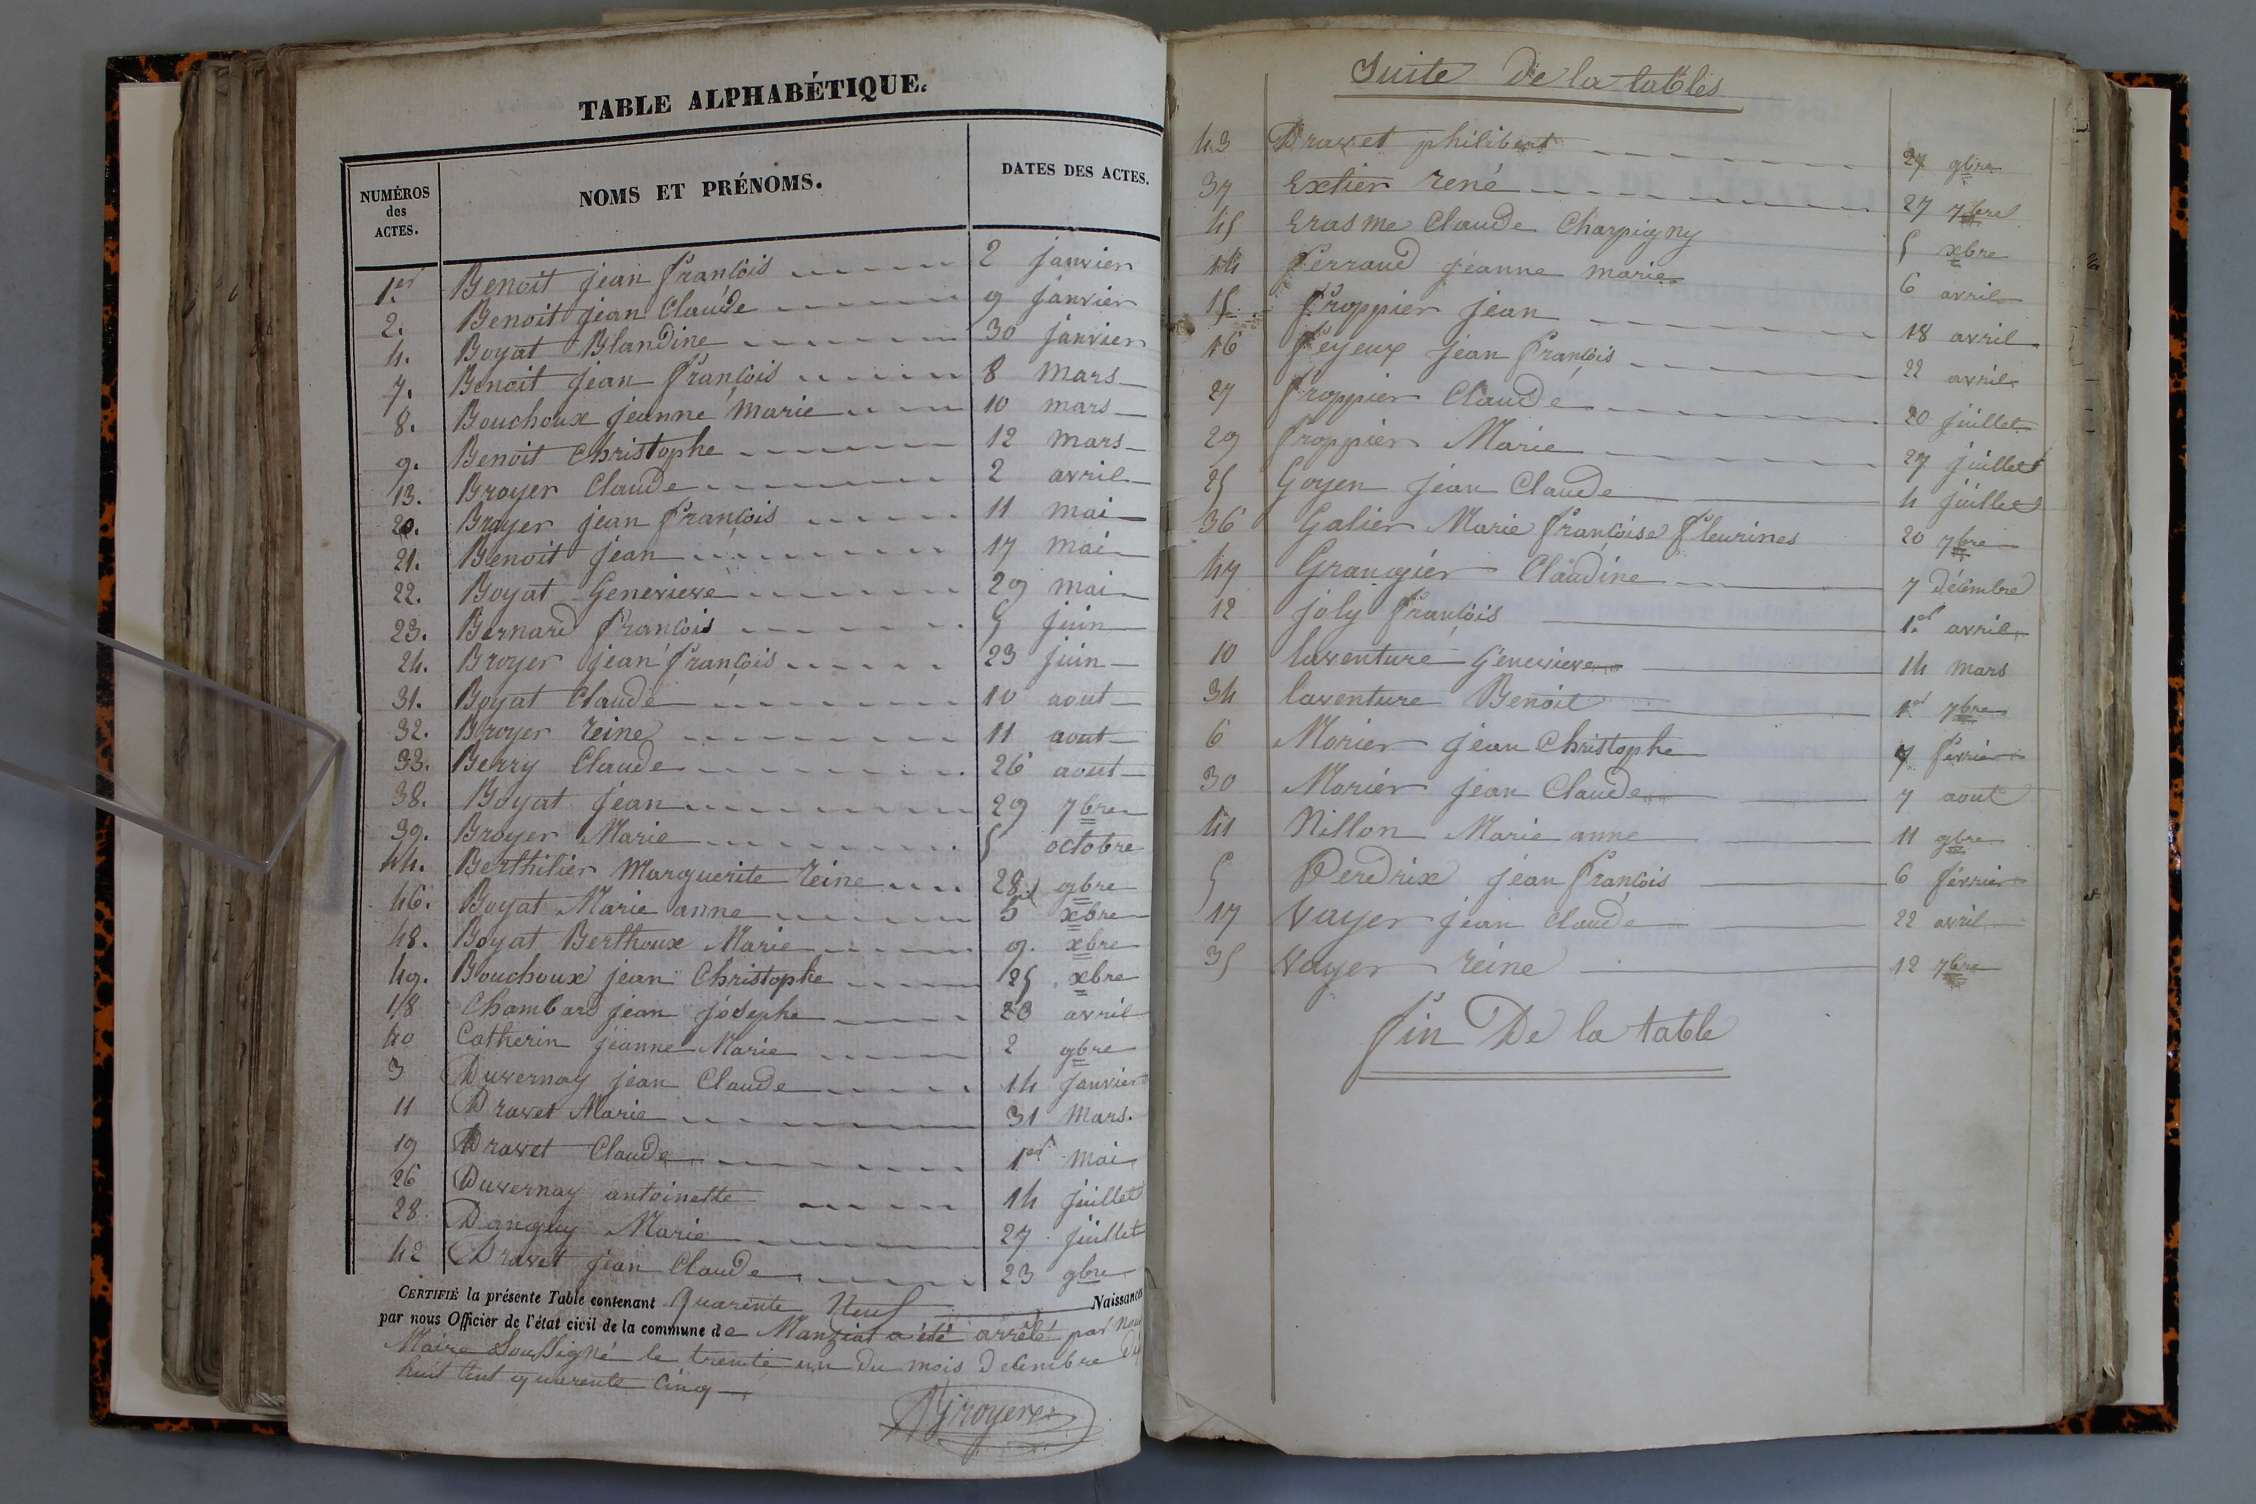 TABLE ALPHABÉTIQUE.
NUMÉROS des ACTES. NOMS ET PRÉNOMS. DATES DES ACTES.
1.er Benoit jean françois 2 janvier
2. Benoit jean Claude 9 janvier
4. Boyat Blandine 30 janvier
7. Benoit jean françois 8 mars
8. Bouchoux jeanne marie 10 mars
9. Benoit Christophe 12 mars
13. Broyer Claude 2 avril
20. Broyer jean françois 11 mai
21. Benoit jean 17 mai
22. Boyat Genevieve 29 mai
23. Bernard françois 5 juin
24. Broyer jean françois 23 juin
31. Boyat Claude 10 aout
32. Broyer reine 11 aout
33. Berry Claude 26 aout
38. Boyat jean 29 7bre
39. Broyer Marie 5 octobre
44. Berthilier Marguerite reine 28 9bre
46. Boyat Marie anne 5 xbre
48. Boyat Berthoux Marie 9. xbre
49. Bouchoux jean Christophe 25 xbre
18 Chambard jean jôsephe 23 avril
40 Catherin jeanne Marie 2 9bre
3 Duvernay jean Claude 14 janvier
11 Dravet Marie 31 Mars.
19 Dravet Claude 1er mai
26 Duvernay antoinette 14 juillet
28. Danguy Marie 27 juillet
42 Dravet jean Claude 23 9bre
CERTIFIÉ la présente Table contenant quarente neuf Naissances
par nous Officier de l'état civil de la commune de Manziat a été arrêté par nous
Maire Soussigné le trente un du mois decembre
huit cent quarente cinq
Broyer
Suite De la tables
43 Dravet philibert 27 9bre
37 Extier rené 27 7bre
45 Erasme Claude Charpigny 5 xbre
14 ferraud jeanne marie 6 avril
15 froppier jean 18 avril
16 feyeux jean françois 22 avril
27 froppier Claude 20 juillet
29 froppier Marie 27 juillet
25 Goyen jean Claude 4 juillet
36 Galier Marie françoise fleurines 20 7bre
47 Grangier Claudine 7 décembre
12 joly françois 1.er avril
10 laventure Genevieve 14 mars
34 laventure Benoit 1er 7bre
6 Morier jean Christophe 7 fevrier
30 Morier jean Claude 7 aout
41 Nillon Marie anne 11 9bre
5 Perdrix jean françois 6 février
17 Vayer jean Claude 22 avril
35 Vayer reine 12 7bre
fin De la table